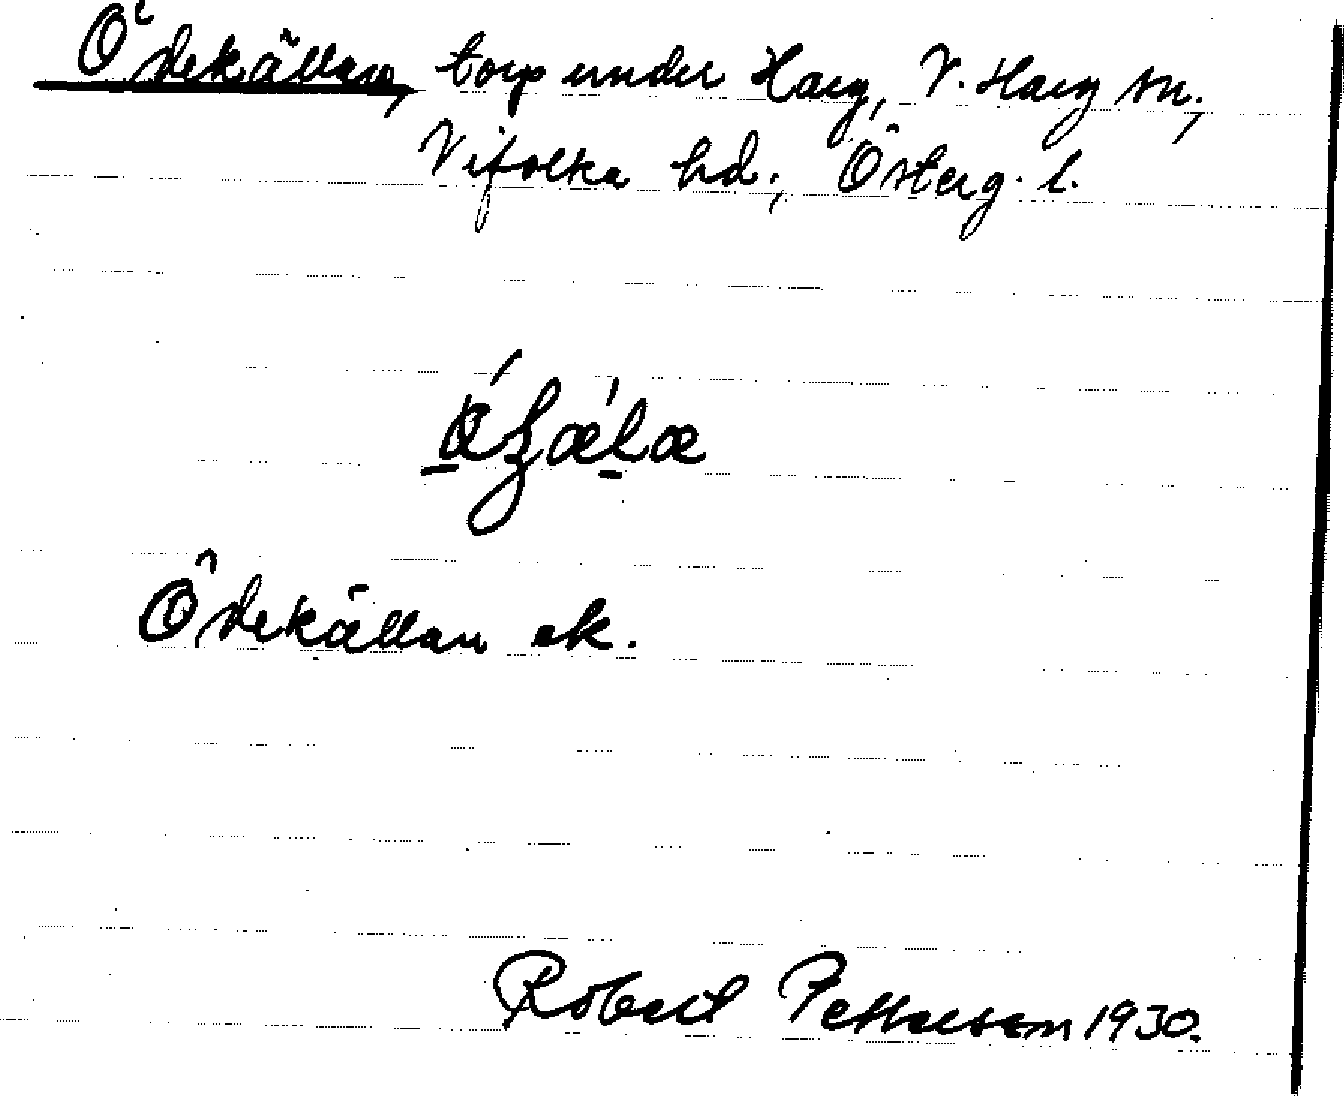 Ödekällan, torp under Harg, V. Harg sn.,
Vifolka hd., Österg. l.
Ödekällan ek.
Robert Pettersson 1930.